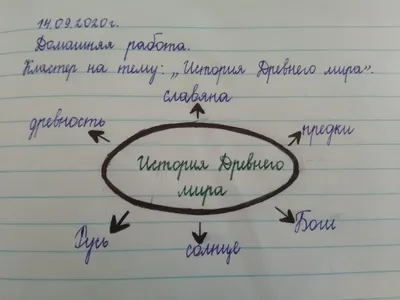 14.09.2020г.
Домашняя работа.
Кластер на тему: „История Древнего мира".
славяна
древность
предки
История Древнего
мира
Русь
солнце
Боги